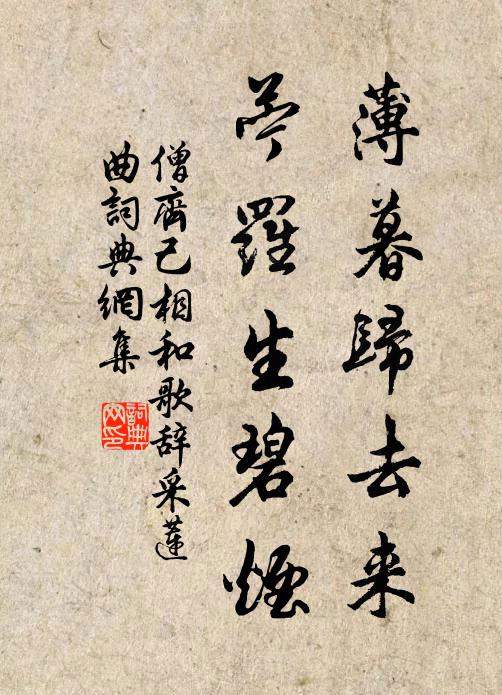 薄暮歸去来
苧羅生碧煙
僧齊己相和歌辞采蓮
曲詞典網集
詞典
网印